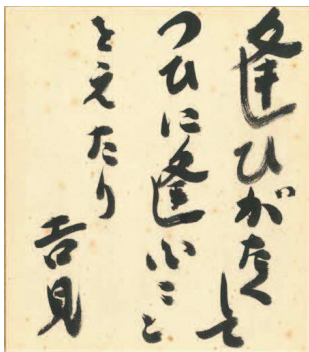 逢ひがたくして
つひに逢ふこと
をえたり
吉見